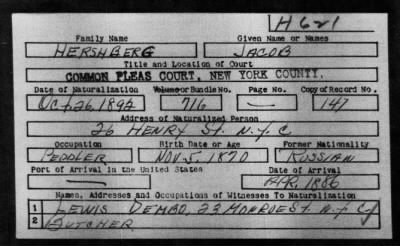 H621
Family Name Given Name or Names
HERSHBERG JACOB
Title and Location of Court
COMMON PLEAS COURT, NEW YORK COUNTY.
Date of Naturalization Volume or Bundle No. Page No. Copy of Record No.
Oct. 26, 1892 716 — 147
Address of Naturalized Person
26 HENRY St. N.Y.C
Occupation Birth Date or Age Former Nationality
PEDDLER NOV. 5, 1870 RUSSIAN
Port of Arrival in the United States Date of Arrival
— APR. 1886
Names, Addresses and Occupations of Witnesses To Naturalization
1 LEWIS DEMBO, 23 MONROE ST. N.Y.C
2 BUTCHER